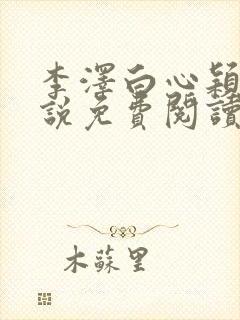 李澤白心穎
說免費閱讀
木蘇里